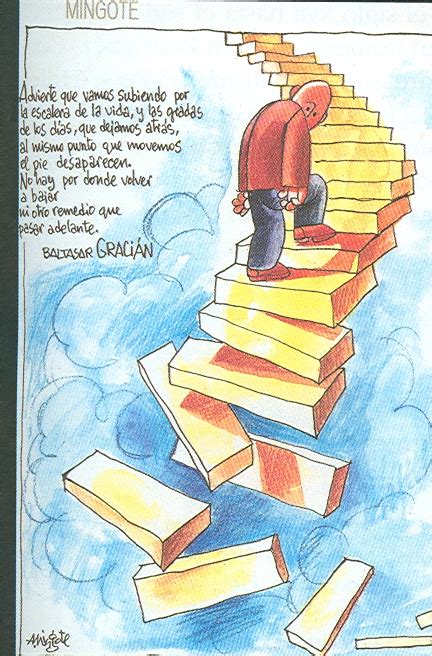 MINGOTE
Advierte que vamos subiendo por
la escalera de la vida, y las gradas
de los días, que dejamos atrás,
al mismo punto que movemos
el pie desaparecen.
No hay por donde volver
a bajar
ni otro remedio que
pasar adelante.
BALTASAR GRACIÁN
Mingote